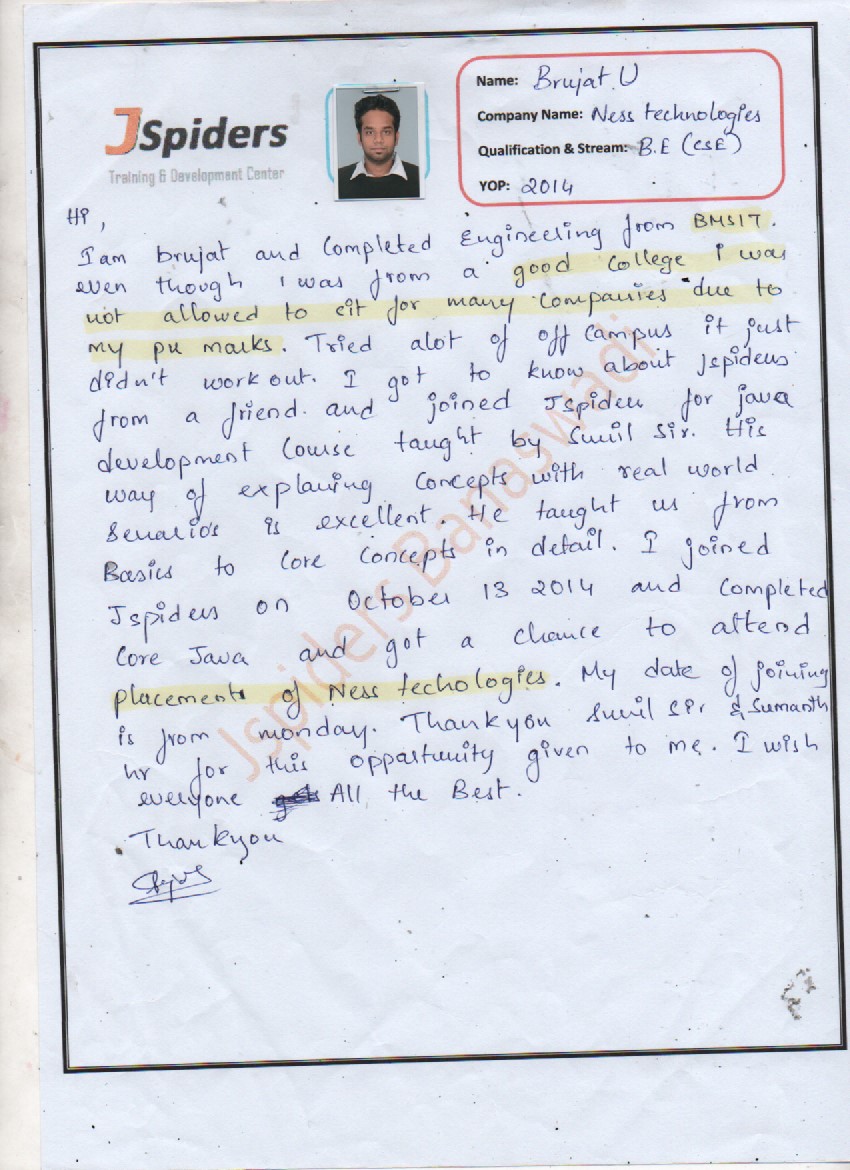 JSpiders
Training & Development Center
Name: Brujat.U
Company Name: Ness technologies
Qualification & Stream: B.E (CSE)
YOP: 2014
Hi,
I am brujat and completed Engineering from BMSIT.
even though I was from a good college i was
not allowed to cit for many companies due to
my pu marks. Tried alot of off campus it just
didn't work out. I got to know about Jspiders
from a friend. and joined Jspiders for java
development course taught by Sunil Sir. His
way of explaning concepts with real world
Senarios is excellent. He taught us from
Basics to Core Concepts in detail. I joined
Jspiders on October 13 2014 and completed
Core Java and got a chance to attend
placements of Ness techologies. My date of joining
is from monday. Thankyou Sunil Sir & Sumanth
hr for this oppartunity given to me. I wish
everyone All the Best.
Thankyou
Jspiders Banaswadi